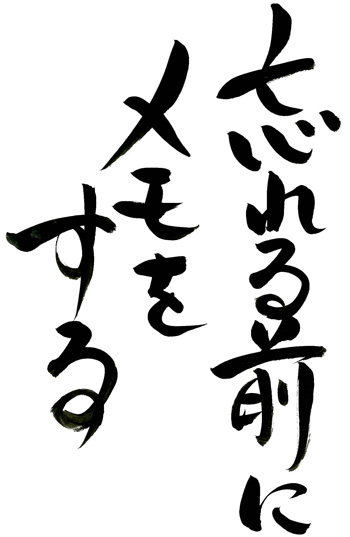 忘れる前に
メモを
する